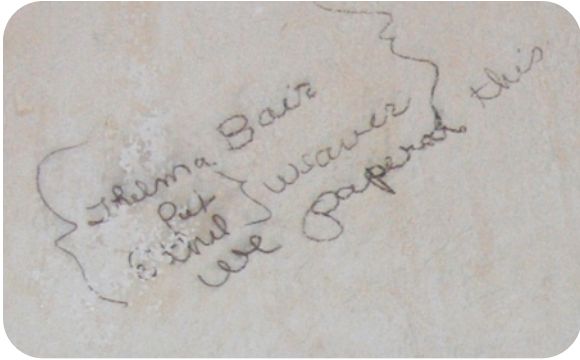 Thelma Bair
Pat
Ethel } Weaver
We papered this